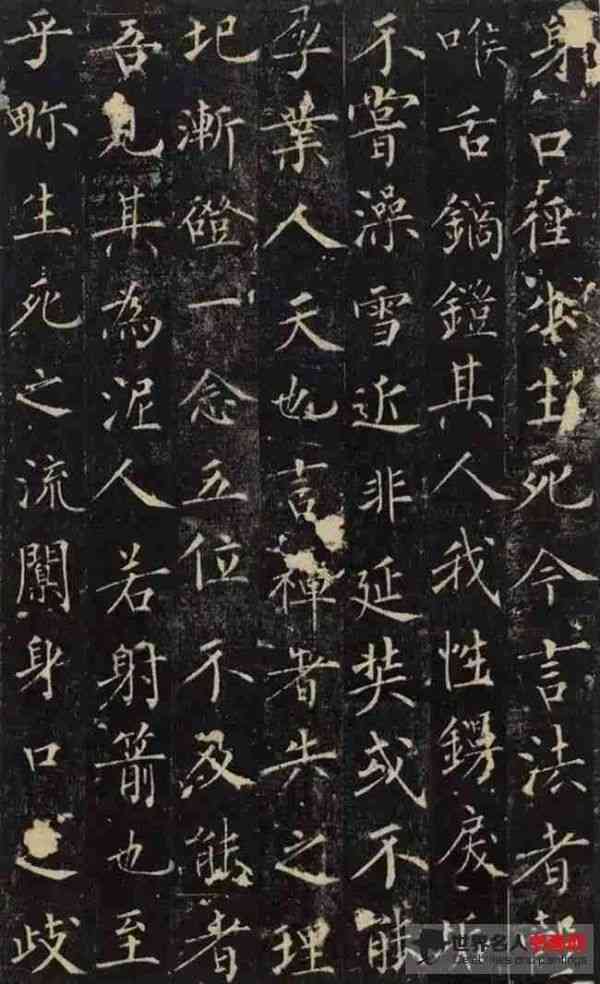 身口徑生死今言法者
喉舌鏑鎧其人我性鍔戾
不嘗澡雪近非延奘或不能
承業人天也言禪者失之理
圯漸磴一念五位不及能者
吾見其為泥人若射箭也至
乎畛生死之流闌身口之歧
世界名人书画网
Celebrities and paintings